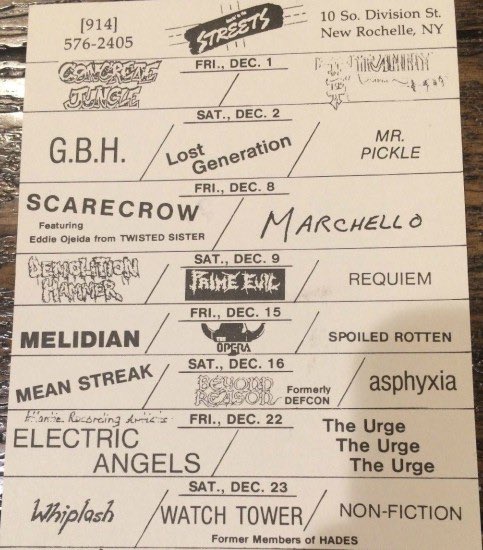 [914]
576-2405
STREETS
10 So. Division St.
New Rochelle, NY
FRI., DEC. 1
CONCRETE
JUNGLE
SAT., DEC. 2
G.B.H.
Lost
Generation
MR.
PICKLE
FRI., DEC. 8
SCARECROW
Featuring
Eddie Ojeida from TWISTED SISTER
MARCHELLO
SAT., DEC. 9
DEMOLITION
HAMMER
PRIME EVIL
REQUIEM
FRI., DEC. 15
MELIDIAN
OPERA
SPOILED ROTTEN
SAT., DEC. 16
MEAN STREAK
BEYOND
REASON
Formerly
DEFCON
asphyxia
FRI., DEC. 22
Atlantic Recording Artists
ELECTRIC
ANGELS
The Urge
The Urge
The Urge
SAT., DEC. 23
Whiplash
WATCH TOWER
NON-FICTION
Former Members of HADES